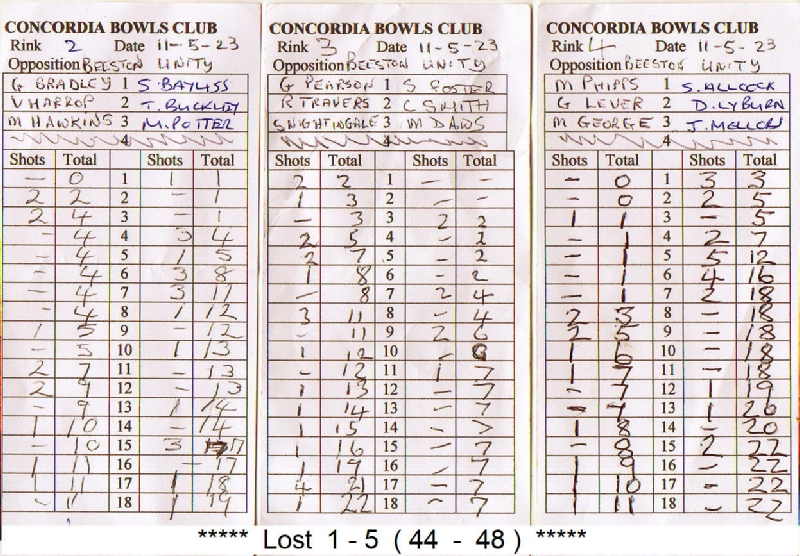 CONCORDIA BOWLS CLUB
Rink 2 Date 11-5-23
Opposition BEESTON UNITY
G BRADLEY 1 S. BAYLISS
V HARROP 2 T. BUCKLEY
M HAWKINS 3 M. POTTER
4
Shots Total Shots Total
- 0 1 1 1
2 2 2 - 1
2 4 3 - 1
- 4 4 3 4
- 4 5 1 5
- 4 6 3 8
- 4 7 3 11
- 4 8 1 12
1 5 9 - 12
- 5 10 1 13
2 7 11 - 13
2 9 12 - 13
- 9 13 1 14
1 10 14 - 14
- 10 15 3 17
1 11 16 - 17
- 11 17 1 18
- 11 18 1 19
CONCORDIA BOWLS CLUB
Rink 3 Date 11-5-23
Opposition BEESTON UNITY
G PEARSON 1 S FOSTER
R TRAVERS 2 C SMITH
S NIGHTINGALE 3 M DAWS
4
Shots Total Shots Total
2 2 1 - -
1 3 2 - -
- 3 3 2 2
2 5 4 - 2
2 7 5 - 2
1 8 6 - 2
- 8 7 2 4
3 11 8 - 4
- 11 9 2 6
1 12 10 - 6
- 12 11 1 7
1 13 12 - 7
1 14 13 - 7
1 15 14 - 7
1 16 15 - 7
1 19 16 - 7
4 21 17 - 7
1 22 18 - 7
CONCORDIA BOWLS CLUB
Rink 4 Date 11-5-23
Opposition BEESTON UNITY
M PHIPPS 1 S. ALLCOCK
G LEVER 2 D. LYBURN
M GEORGE 3 J. MELLORS
4
Shots Total Shots Total
- 0 1 3 3
- 0 2 2 5
1 1 3 - 5
- 1 4 2 7
- 1 5 5 12
- 1 6 4 16
- 1 7 2 18
2 3 8 - 18
2 5 9 - 18
1 6 10 - 18
1 7 11 - 18
- 7 12 1 19
- 7 13 1 20
1 8 14 - 20
- 8 15 2 22
1 9 16 - 22
1 10 17 - 22
1 11 18 - 22
***** Lost 1 - 5 ( 44 - 48 ) *****